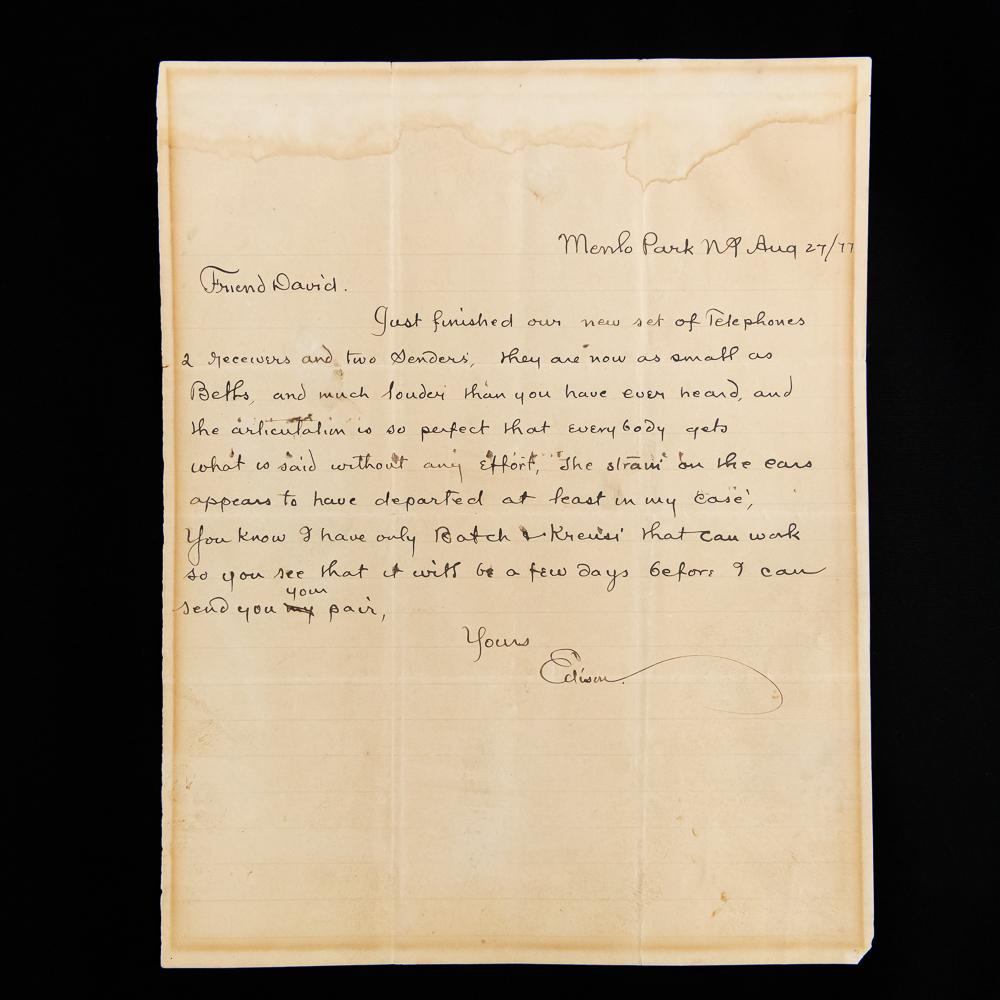 Menlo Park NJ Aug 27/77
Friend David.
Just finished our new set of Telephones
2 receivers and two Senders, they are now as small as
Bells, and much louder than you have ever heard, and
the articulation is so perfect that everybody gets
what is said without any effort, The strain on the ears
appears to have departed at least in my case,
You know I have only Batch & Kreusi that can work
so you see that it will be a few days before I can
your
send you my pair,
Yours
Edison